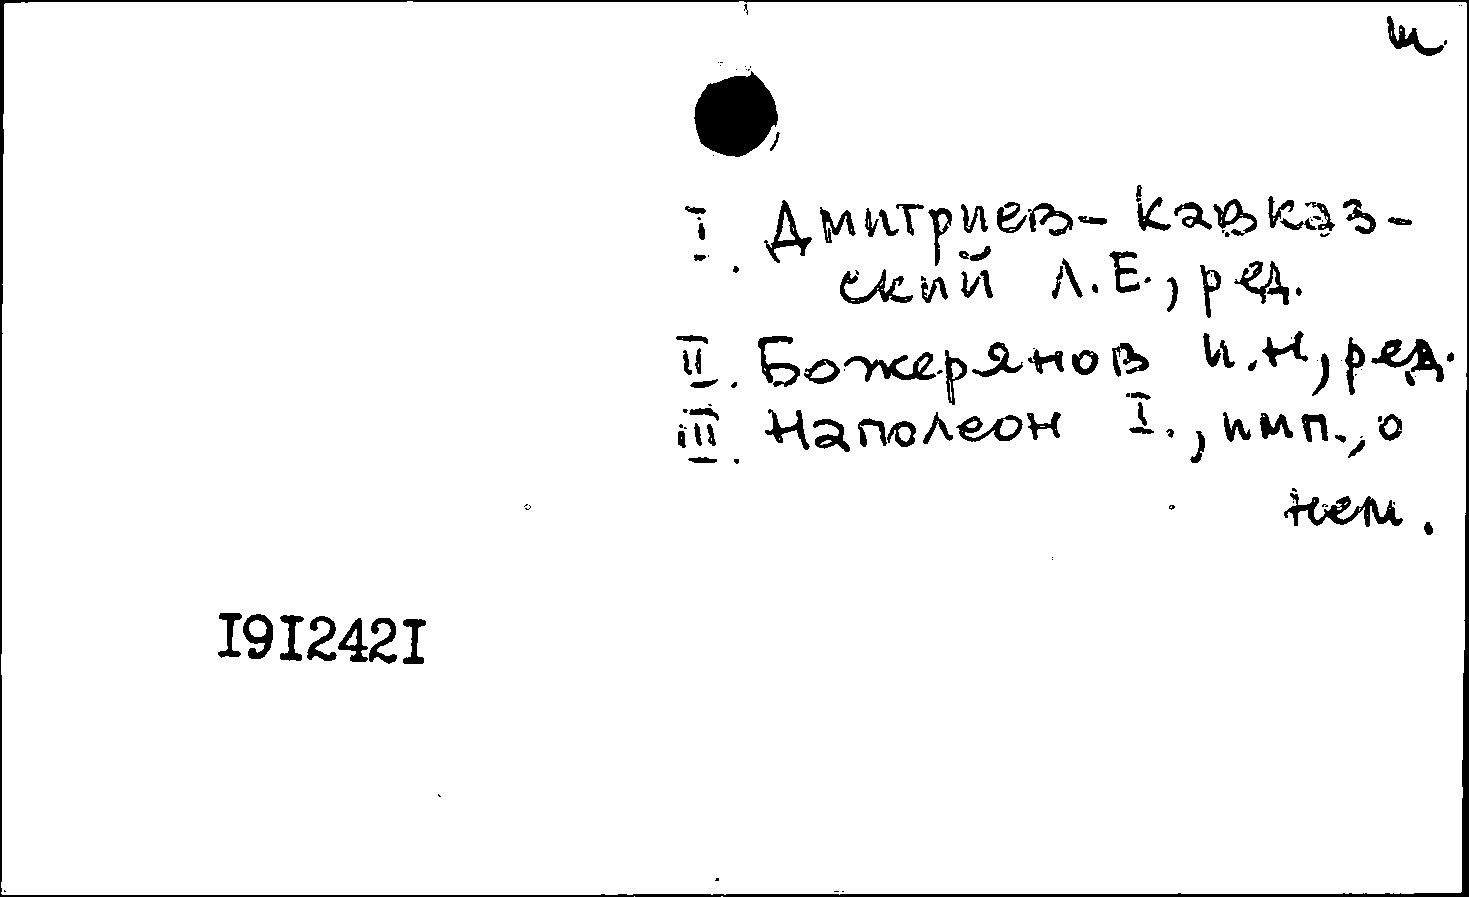 ш
I. Дмитриев-Кавказ-
ский Л.Е., ред.
II. Божерянов И.Н, ред.
III. Наполеон I., имп., о
нем.
I9I242I